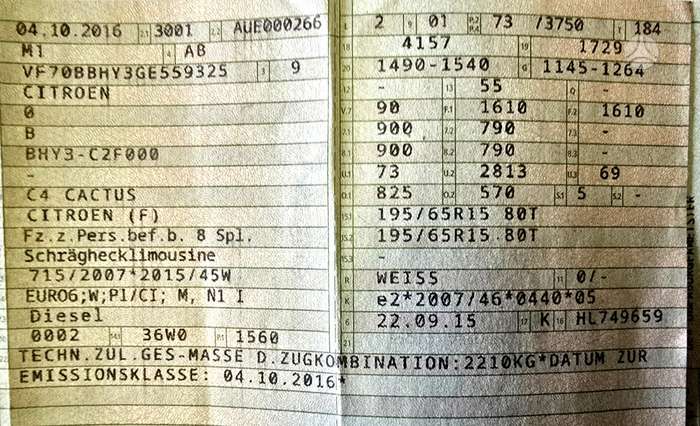 04.10.2016 2.1 3001 2.2 AUE000266
M1 4 AB
VF70BBHY3GE559325 3 9
CITROEN
0
B
BHY3-C2F000
-
C4 CACTUS
CITROEN (F)
Fz.z.Pers.bef.b. 8 Spl.
Schräghecklimousine
715/2007*2015/45W
EURO6;W;PI/CI; M, N1 I
Diesel
0002 14.1 36W0 P.1 1560
L 2 9 01 P.2 P.4 73 /3750 T 184
18 4157 19 1729
20 1490-1540 G 1145-1264
12 - 13 55 Q -
V.7 90 F.1 1610 F.2 1610
7.1 900 7.2 790 7.3 -
8.1 900 8.2 790 8.3 -
U.1 73 U.2 2813 U.3 69
O.1 825 O.2 570 S.1 5 S.2 -
15.1 195/65R15 80T
15.2 195/65R15 80T
15.3 -
R WEISS 11 0/-
K e2*2007/46*0440*05
6 22.09.15 17 K 16 HL749659
21
22 TECHN.ZUL.GES-MASSE D.ZUGKOMBINATION:2210KG*DATUM ZUR
EMISSIONSKLASSE: 04.10.2016*